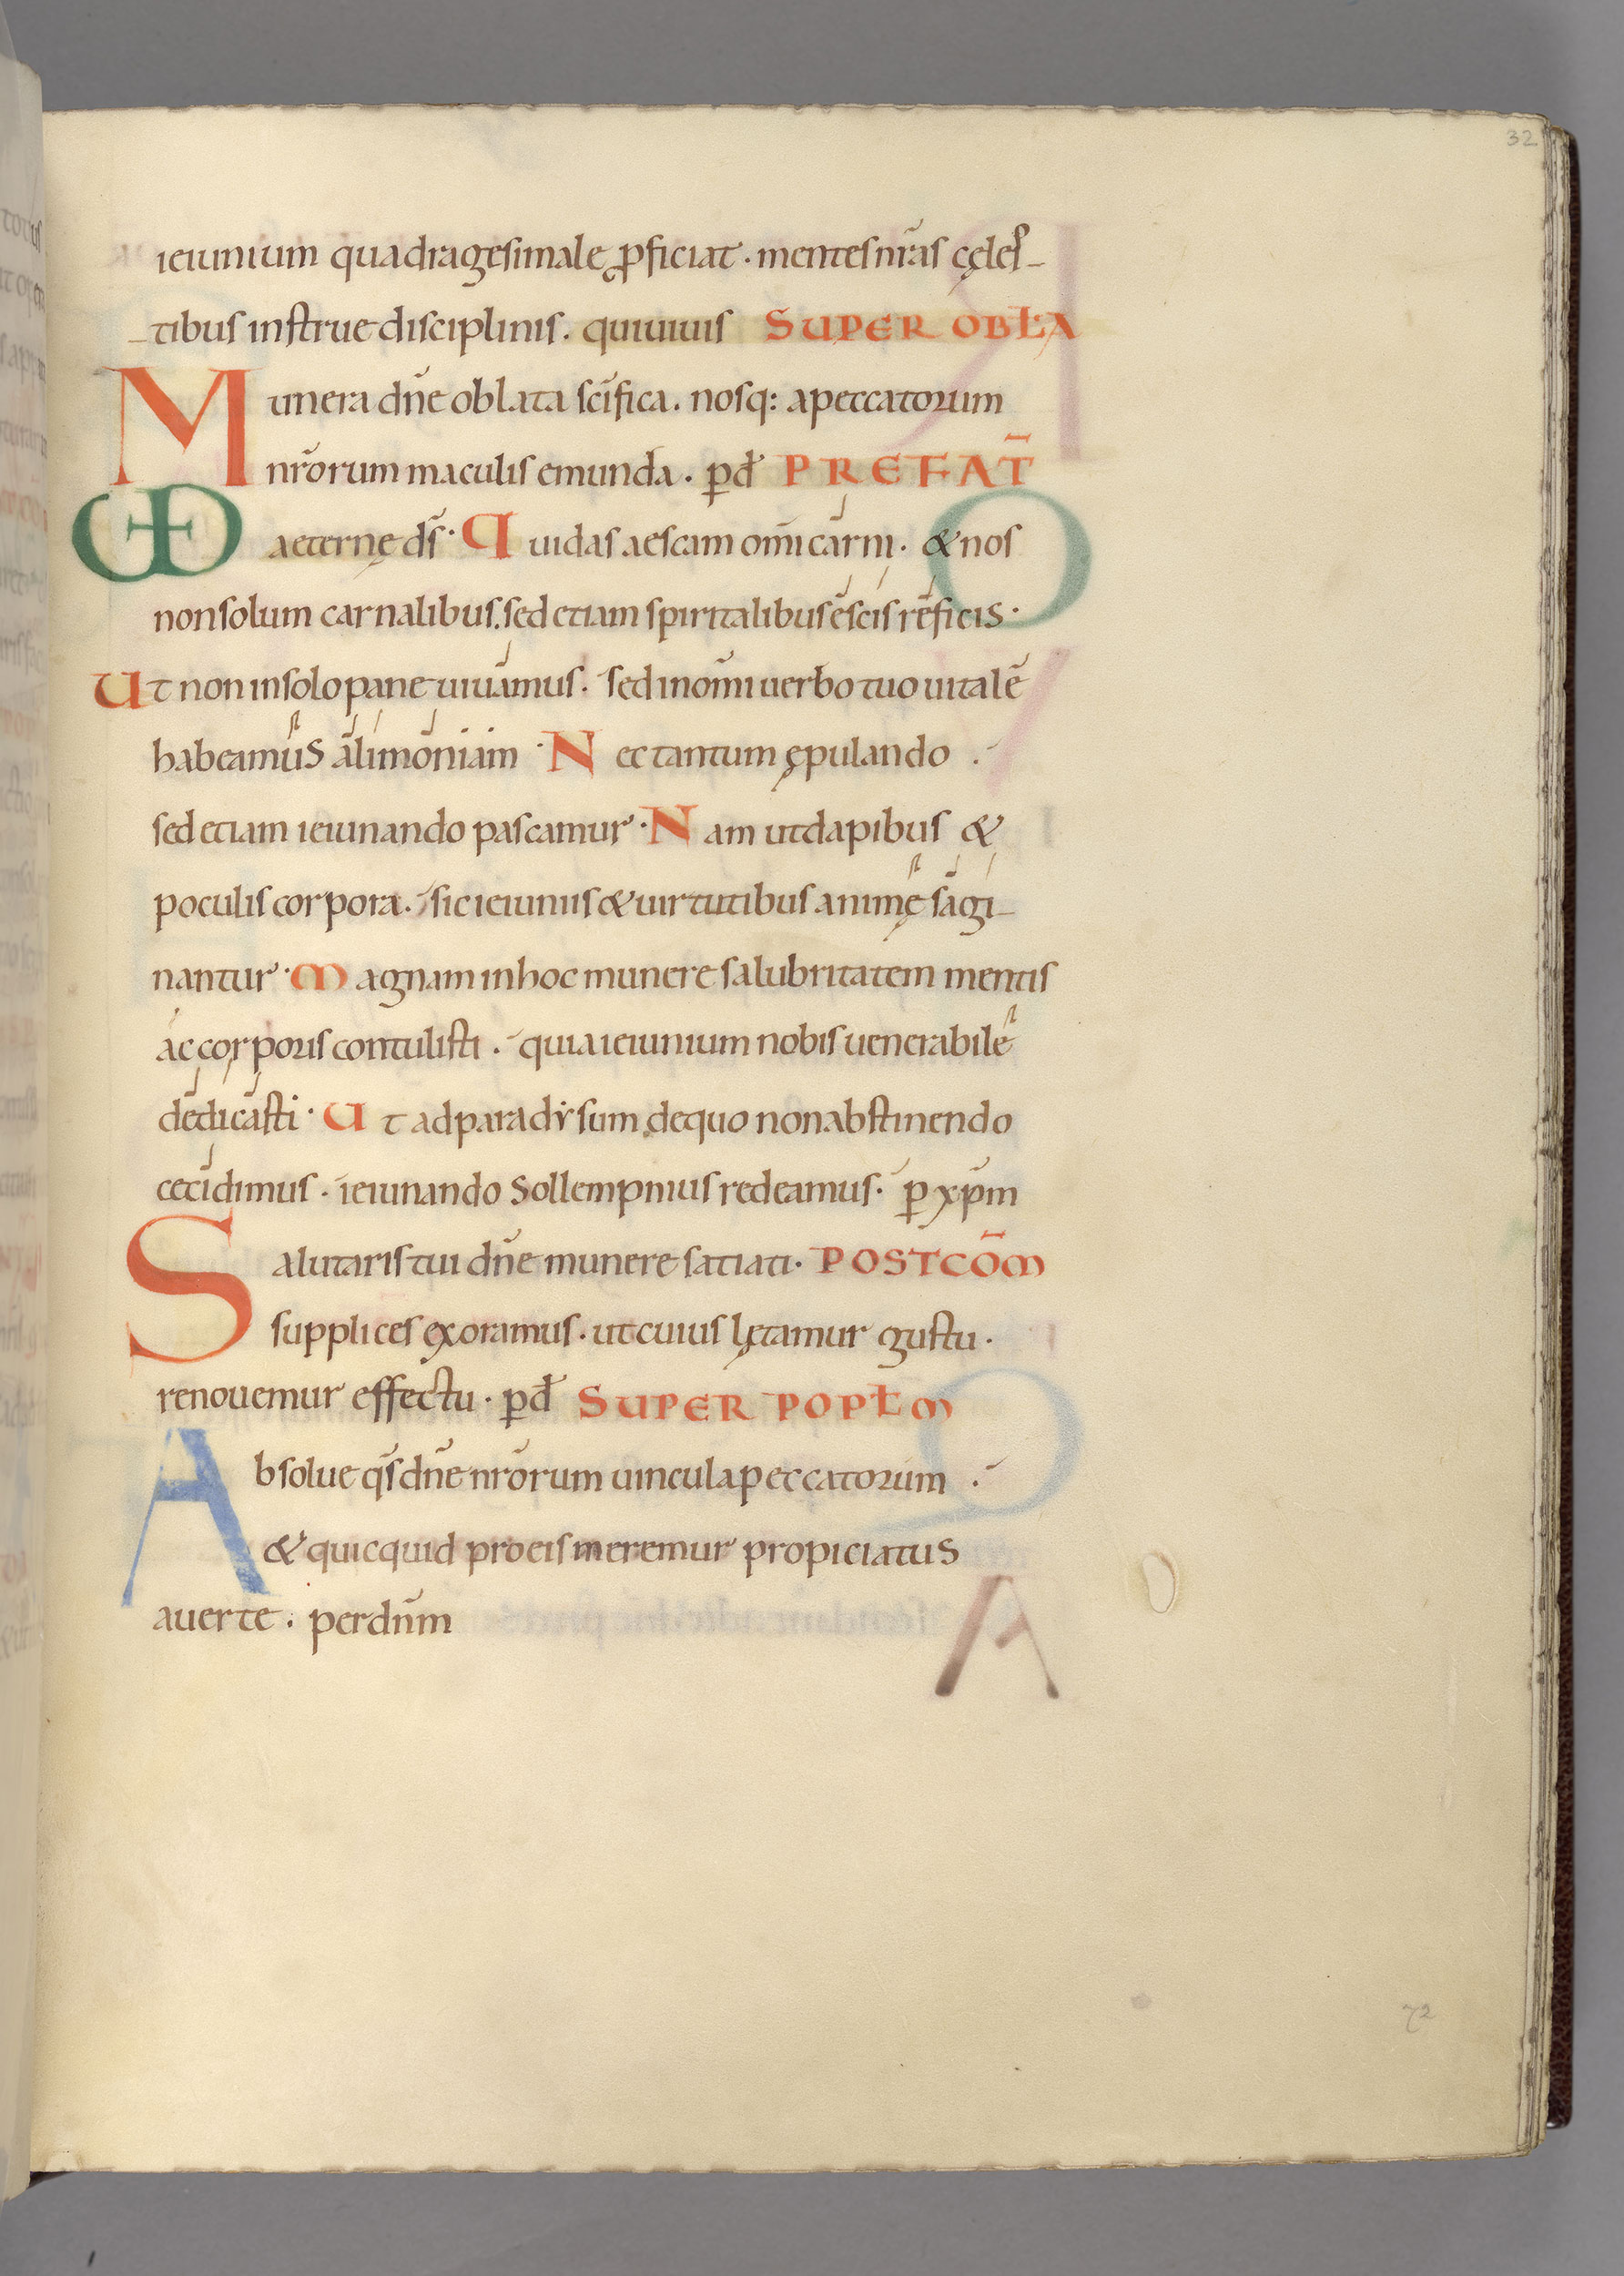 32
ieiunium quadragesimale ꝓficiat · mentes nr̄as cęles-
-tibus instrue disciplinis. qui uiuis SUPER OBŁA
Munera dn̄e oblata sc̄ifica. nosq: a peccatorum
nr̄orum maculis emunda · ꝑ đ PREFAT̄
UD aeternę ds̄ · Qui das aescam om̄i carni. & nos
non solum carnalibus. sed etiam spiritalibus escis reficis ·
Ut non in solo pane uiuamus. sed in om̄i uerbo tuo uitalē
habeamus alimoniam · Nec tantum ępulando .
sed etiam ieiunando pascamur · Nam ut dapibus &
poculis corpora. sic ieiuniis & uirtutibus animę sagi-
nantur · Magnam in hoc munere salubritatem mentis
ac corporis contulisti . quia ieiunium nobis uenerabile
dedicasti · Ut ad paradysum de quo non abstinendo
cecidimus . ieiunando Sollempnius redeamus. ꝑ xp̄m
Salutaris tui dn̄e munere satiati. POSTCŌM
supplices exoramus. ut cuius lętamur gustu.
renouemur effectu. ꝑ đ SUPER POPŁM
Absolue qs̄ dn̄e nr̄orum uincula peccatorum .
& quicquid pro eis meremur propiciatus
auerte. per dn̄m
72